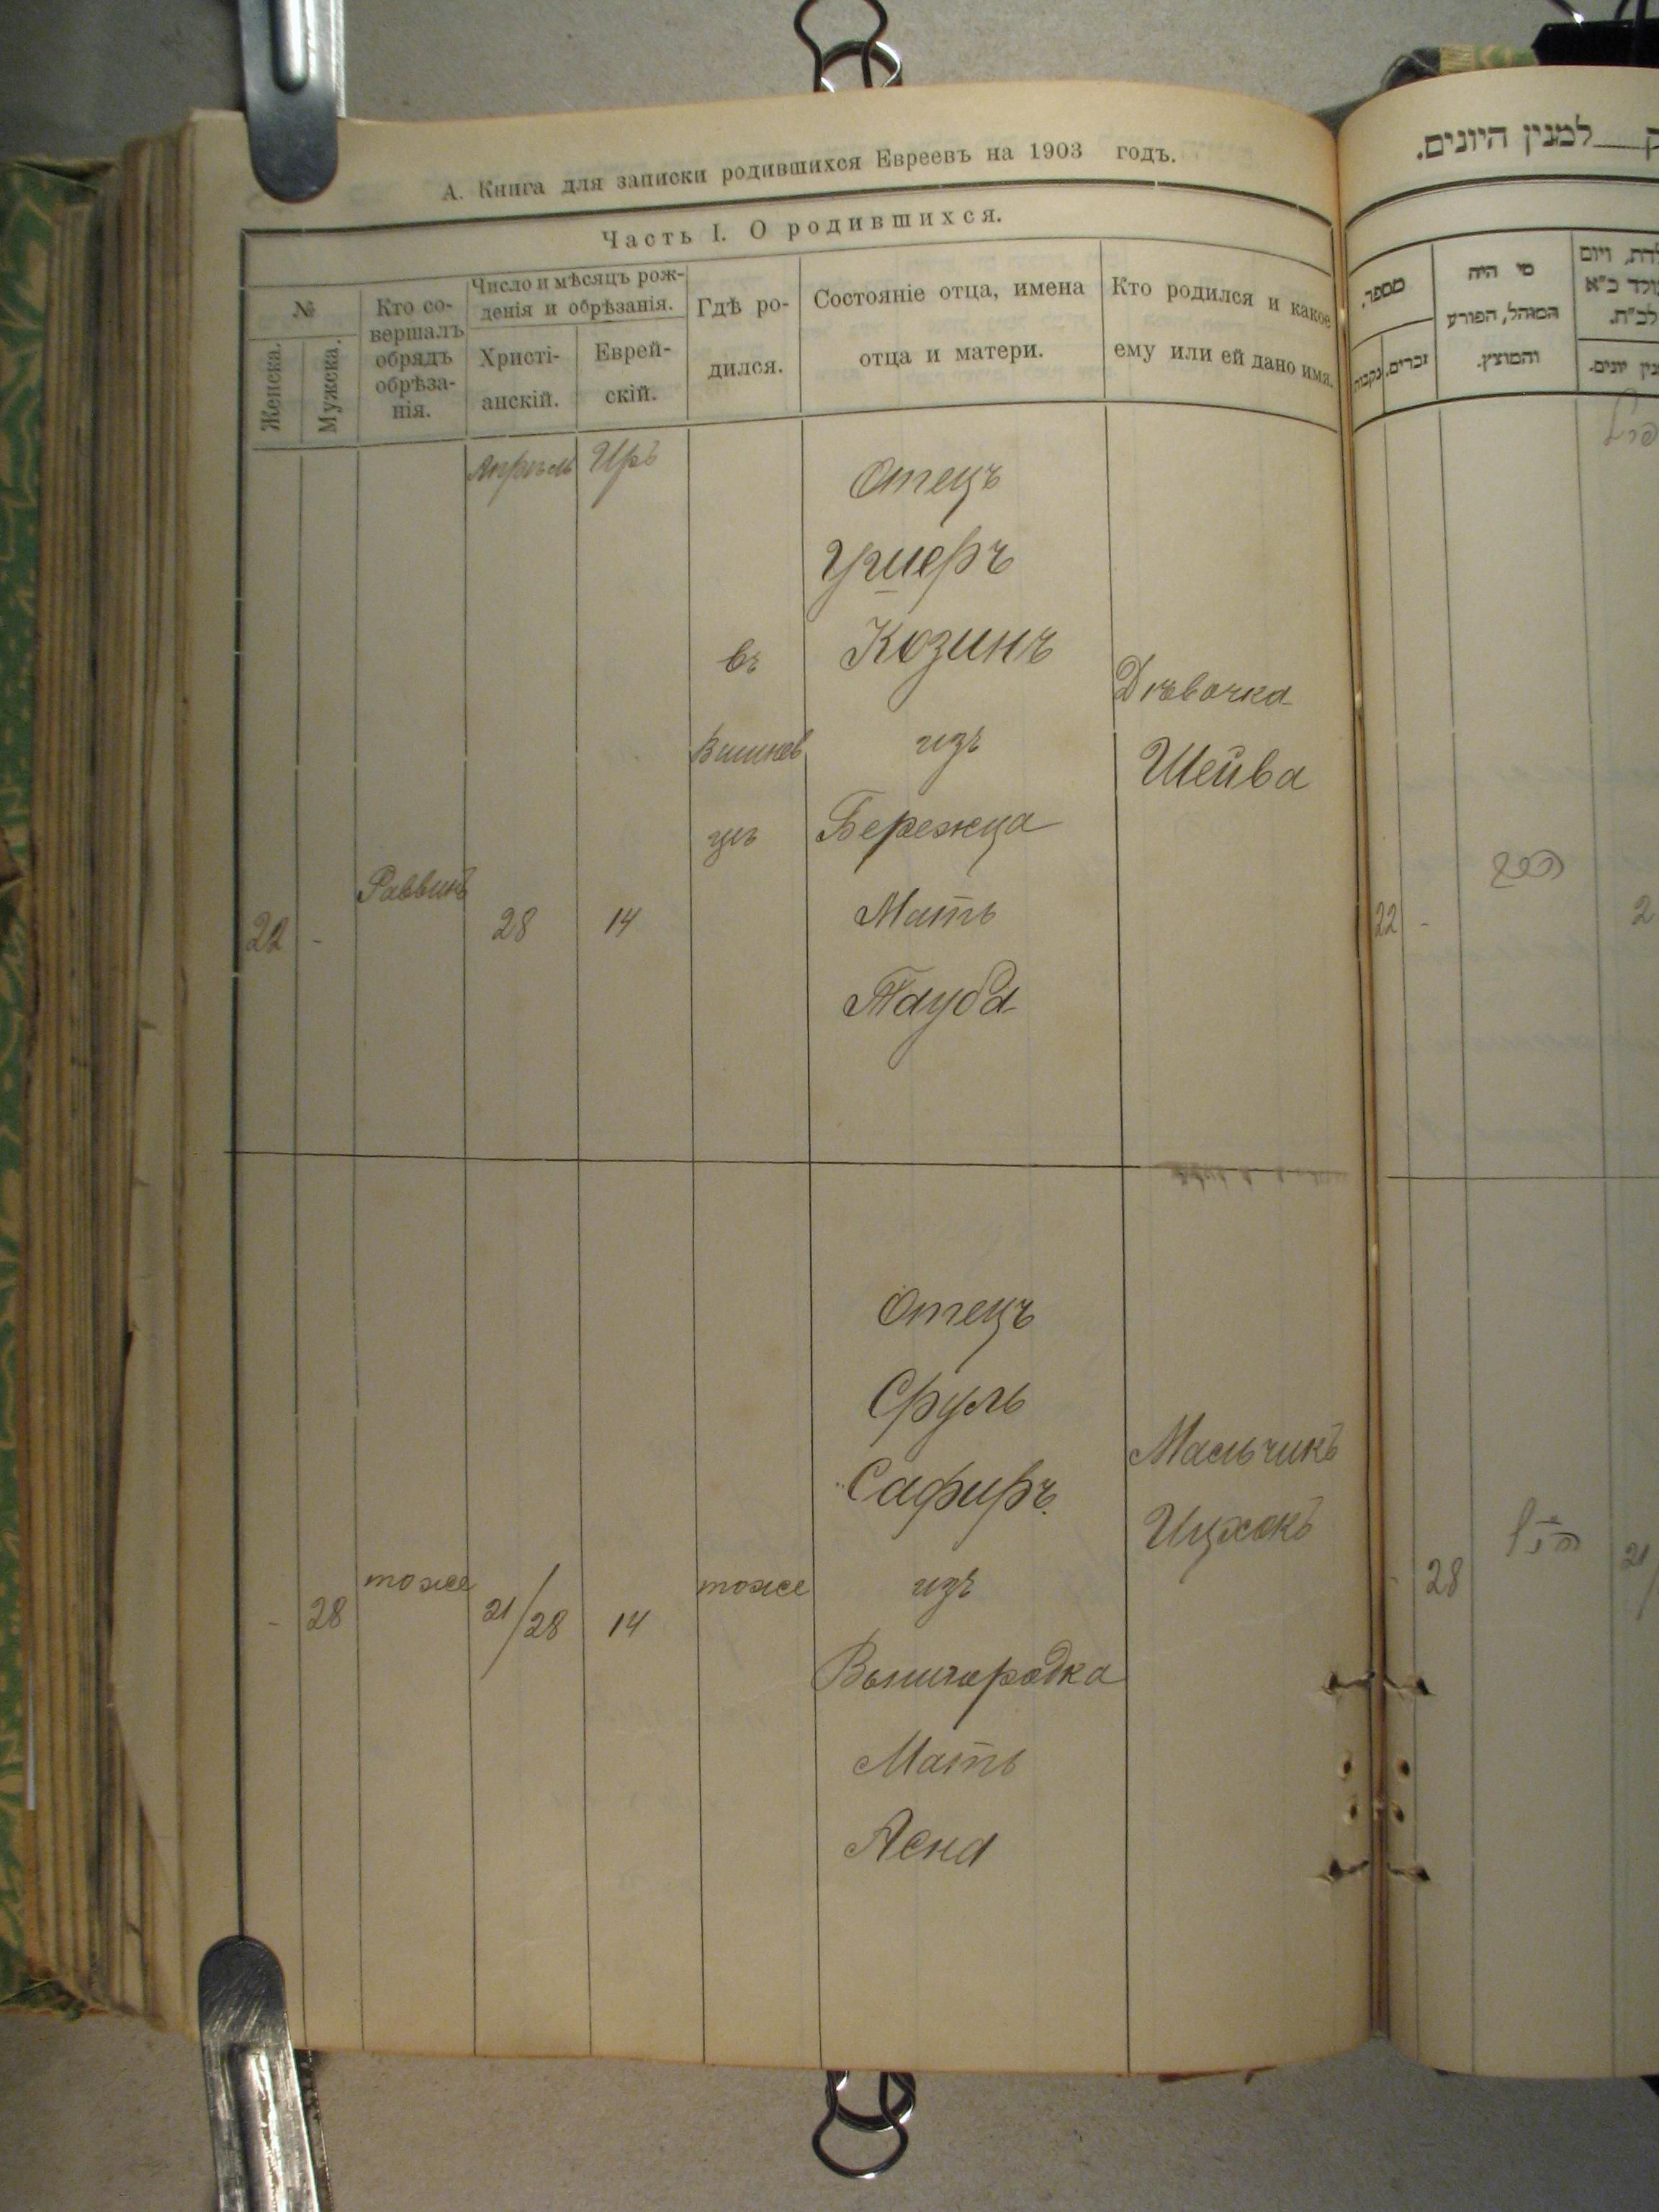 А. Книга для записки родившихся Евреевъ на 1903 годъ.
Часть I. О родившихся.
№
Женска.
Мужска.
Кто со-
вершалъ
обрядъ
обрѣза-
нія.
Число и мѣсяцъ рож-
денія и обрѣзанія.
Христі-
анскій.
Еврей-
скій.
Гдѣ ро-
дился.
Состояніе отца, имена
отца и матери.
Кто родился и какое
ему или ей дано имя.
Апрѣль Иръ
22 - Раввинъ 28 14
въ
Вишнев
цѣ
Отецъ
Ушеръ
Козинъ
изъ
Бережца
Мать
Тауба
Дѣвочка
Шейва
- 28 тоже 21/28 14 тоже
Отецъ
Сруль
Сафиръ
изъ
Вышгородка
Мать
Асна
Мальчикъ
Ицхокъ
למנין היונים.
מספר.
זכרים.
נקבות
מי היה
המוהל, הפורע
והמוצץ.
22 -
- 28